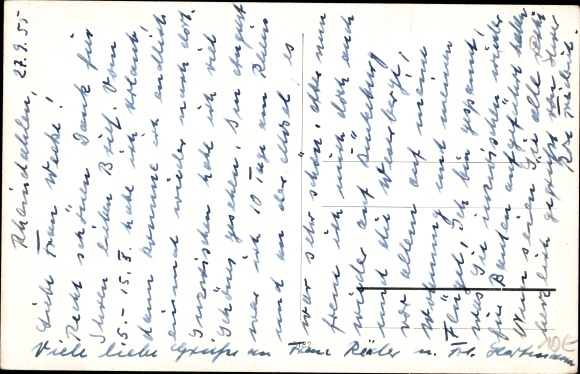 Rheindahlen, 27.9.55
Liebe Frau Wecke!
Recht schönen Dank für
Ihren lieben Brief. Vom
5.-15.X. habe ich Urlaub
dann komme ich endlich
einmal wieder nach dort.
Inzwischen habe ich viel
Schönes gesehen. Im August
war ich 10 Tage am Rhein
und an der Mosel es
war sehr schön, aber nun
freue ich mich doch auch
wieder auf
und die Weserberge,
vor allem auf meine
Wohnung und meinen
Flügel. Ich bin gespannt,
was Sie inzwischen wieder
für Bauten aufgeführt haben
Nun seien Sie alle recht
herzlich gegrüßt von Ihrer
Viele liebe Grüße an Frau u. Frl. Hartmann
10€